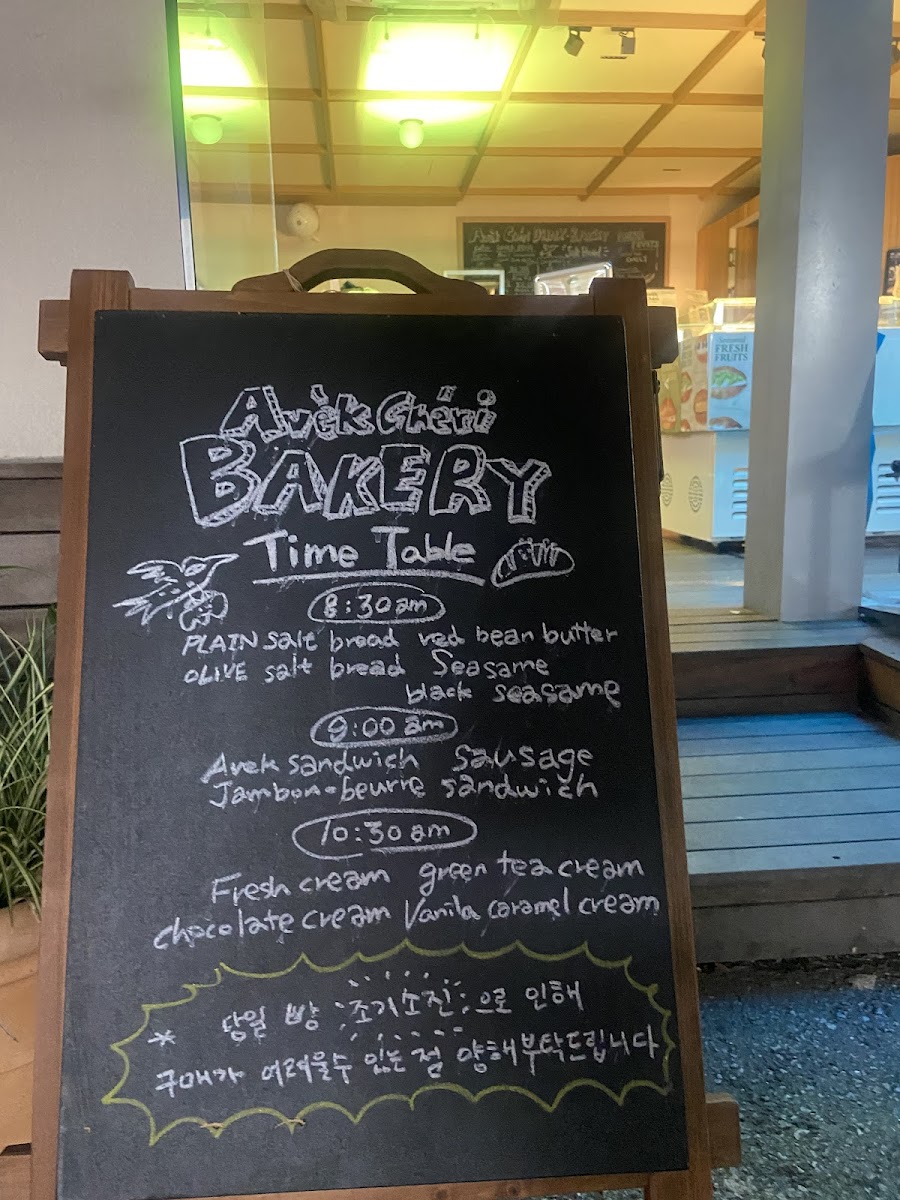 Avèk Chéri
BAKERY
Time Table
8:30am
PLAIN salt bread red bean butter
OLIVE salt bread Seasame
black seasame
9:00 am
Avek sandwich sausage
Jambon-beurre sandwich
10:30am
Fresh cream green tea cream
chocolate cream Vanila caramel cream
* 당일 빵 조기소진으로 인해
구매가 어려울수 있는 점 양해부탁드립니다
FRESH
FRUITS